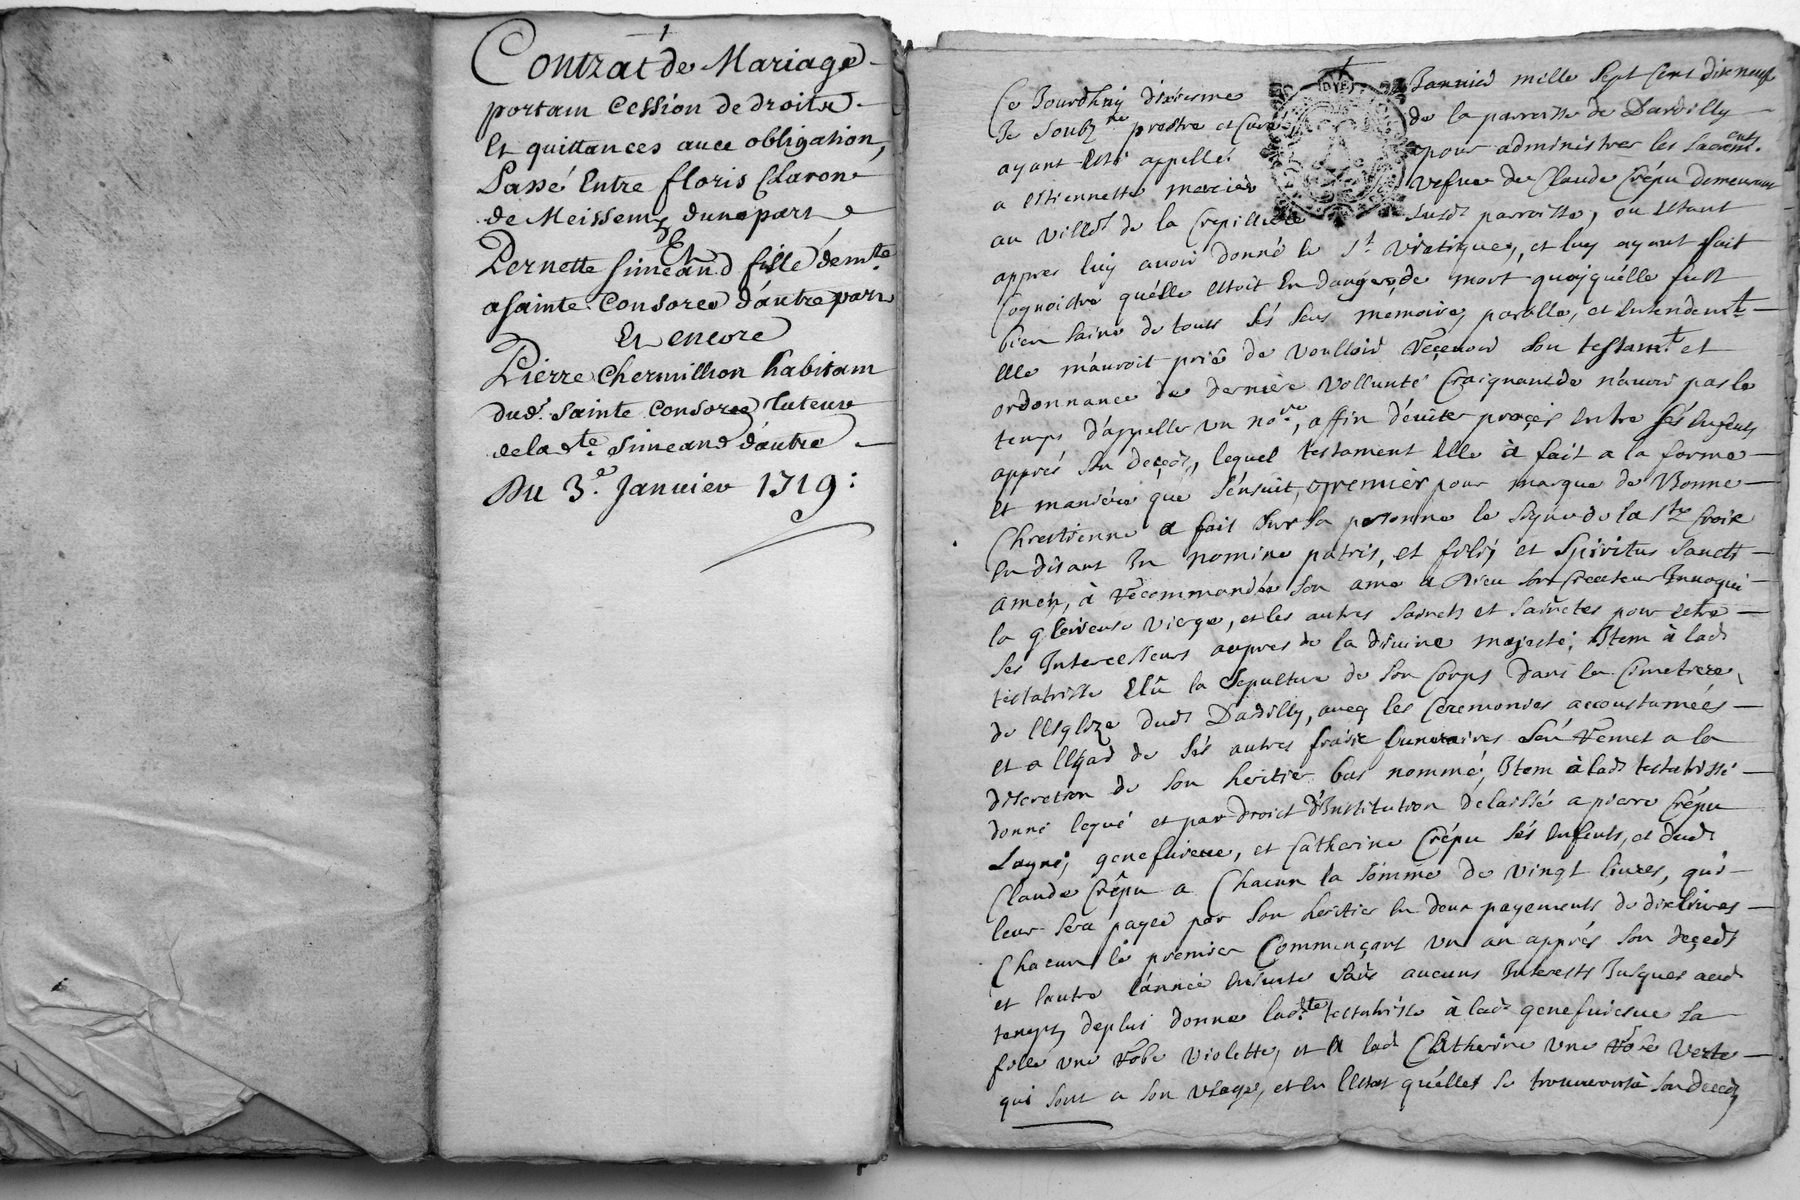 Contrat de Mariage
portam Cession de droits
Et quittances avec obligation,
Passé Entre floris Charon
de Meissemy dune part
Et
Pernette Simeand fille dem.te
a Sainte Consorce d'autre part
Et encore
Pierre Chermillion habitam
dud.t Sainte Consorce tuteur
de la d.te Simeand d'autre
Du 3.e Janvier 1719:
Ce Jourdhuy dixiesme Janvier mille sept cent dix neuf
Je soubz.ne prestre et curé de la parroisse de Dardilly
ayant esté appellé pour administrer les sacrem.ents
a estiennette mercier vefve de Claude Crépu demeurant
au villa.t de la Crepilliere susd.t parroisse, ou estant
appres luy avoir donné le S.t viatique, et luy ayant fait
cognoistre quélle estoit en danger de mort quoyquélle fust
bien saine de tous sés sens memoire, parolle, et entendem.t
elle m'auroit prié de voulloir recevoir son testam.t et
ordonnance de derniere vollunté craignant de n'avoir pas le
temps d'appeller un no.re, affin d'éviter procés entre sés enfents
apprés son decedz, lequel testament elle à fait a la forme
et maniére que s'énsuit, premier pour marque de bonne
Chrestienne a fait sur sa personne le signe de la s.te croix
en disant In nomine patris, et filij et Spiritus Sancti
amen, à recommandée son ame a Dieu son createur Invoqué
la glorieuse vierge, et les autres saincts et sainctes pour estre
ses Intercesseurs aupres de la divine majesté; Item à lad.
testatrisse Elû la sepulture de son corps dans le Cimetiere
de l'Esglize dud. Dadilly, aveq les ceremonies accoustumées
et a l'Egad de sés autres fraix funeraires s'én remet a la
discretion de son heritier bas nommé, Item à lad. testatrisse
donné legué et par droict d'Institution délaissé a pierre Crépu
Layné; genefuieue, et Catherine Crépu sés enfents, et dud.
Claude Crépu a chacun la sómme de vingt livres, qui
leur sera payeé par son heritier en deux payements de dix livres
chacun le premier Commençant un an apprés son deçedz
et lautre l'année ensuite sans aucuns Interests Jusques aud.
temps, deplus donne lad.te testatrisse à lad. genefuieue sa
fille une robe violette, et a lad. Catherine une robe verte
qui sont a son usage, et en l'Estat quélles se trouveront à son decedz